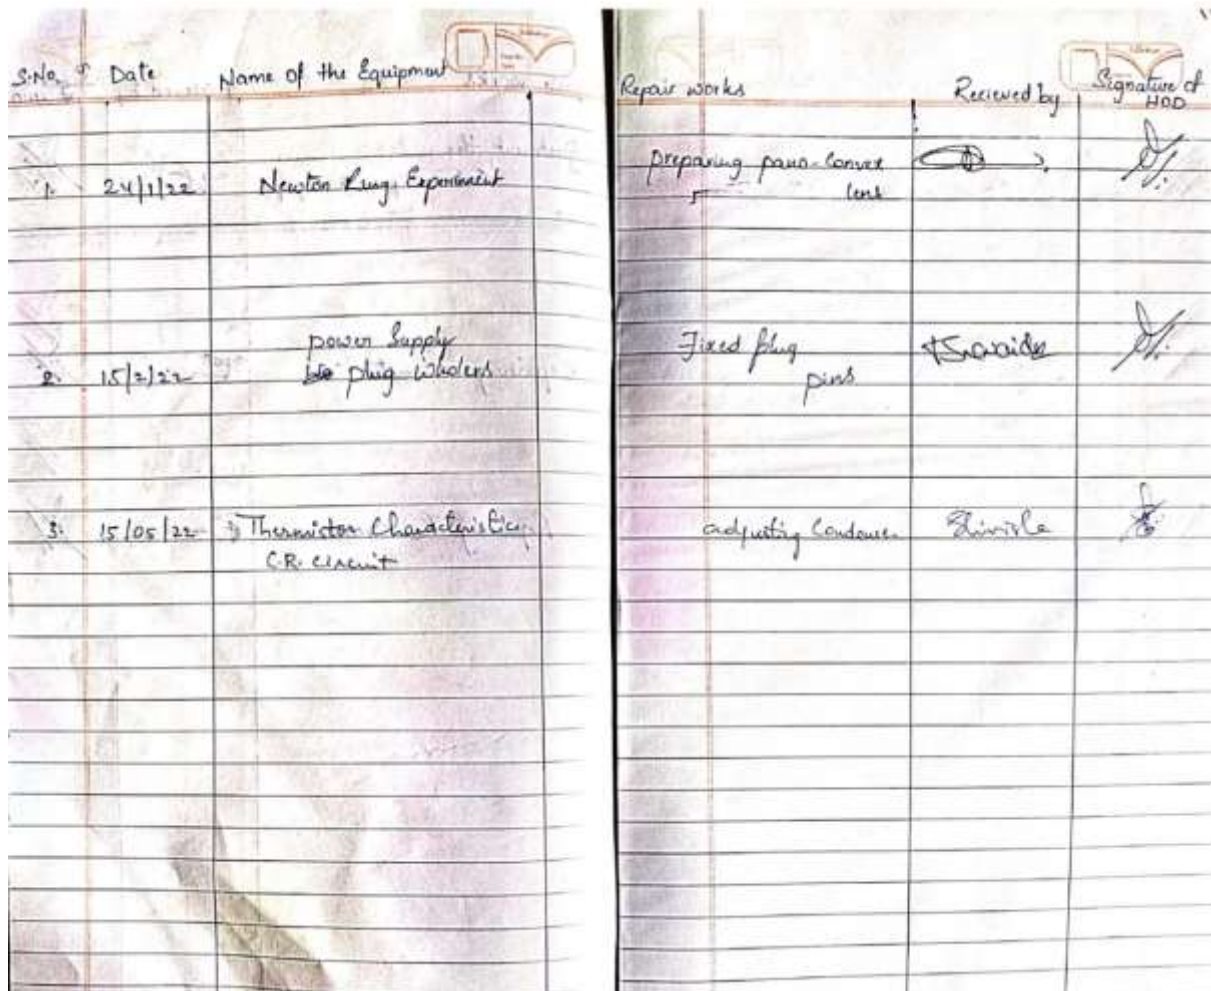 S.No. Date Name of the Equipment Repair works Recieved by Signature of
HOD
1. 24/1/22 Newton Rings Experiment preparing pano-Convex
lens
power Supply Fixed plug
2. 15/2/22 plug pins
3. 15/05/22 Thermistor Characteristics adjusting Condenser
C.R. circuit